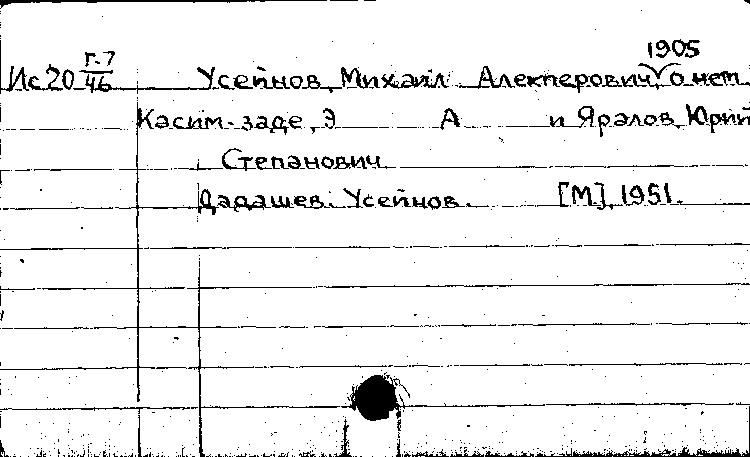 1905
Ис20 Г-7/46 Усейнов, Михаил Алекперович, о нем
Касим-заде, Э А и Яралов, Юрий
Степанович
Дадашев. Усейнов. [М], 1951.